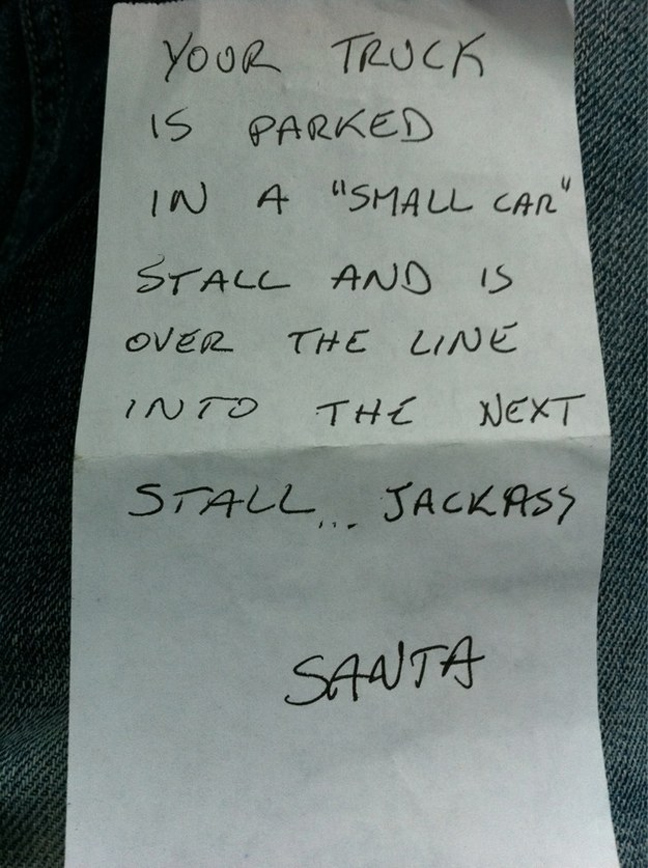 YOUR TRUCK
IS PARKED
IN A "SMALL CAR"
STALL AND IS
OVER THE LINE
INTO THE NEXT
STALL... JACKASS
SANTA